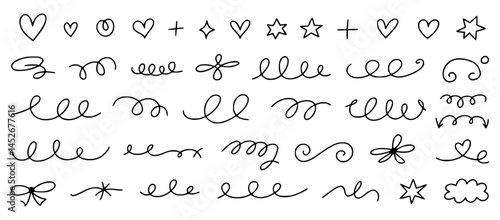 Adobe Stock | #1452677616